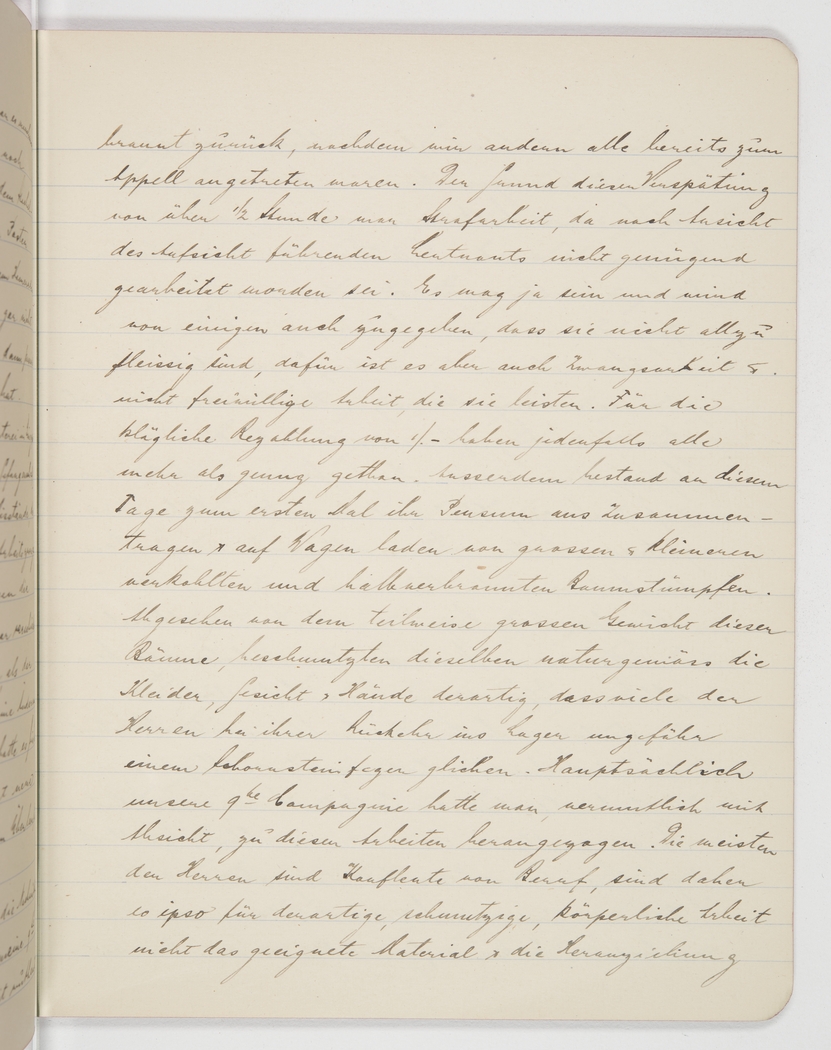 brannt zurück, nachdem wir andern alle bereits zum
Appell angetreten waren. Der Grund dieser Verspätung
von über 1/2 Stunde war Strafarbeit, da nach Ansicht
des Aufsicht führenden Leutnants nicht genügend
gearbeitet worden sei. Es mag ja sein und wird
von einigen auch zugegeben, dass sie nicht allzu
fleissig sind, dafür ist es aber auch Zwangsarbeit &
nicht freiwillige Arbeit, die sie leisten. Für die
klägliche Bezahlung von 1/- haben jedenfalls alle
mehr als genug gethan. Ausserdem bestand an diesem
Tage zum ersten Mal ihr Pensum aus Zusammen-
tragen & auf Wagen laden von grossen & kleineren
verkohlten und halbverbrannten Baumstümpfen.
Abgesehen von dem teilweise grossen Gewicht dieser
Bäume, beschmutzten dieselben naturgemäss die
Kleider, Gesicht & Hände derartig, dass viele der
Herren bei ihrer Rückehr ins Lager ungefähr
einem Schornsteinfeger glichen. Hauptsächlich
unsere 9te Compagnie hatte man, vermutlich mit
Absicht, zu diesen Arbeiten herangezogen. Die meisten
der Herren sind Kaufleute von Beruf, sind daher
eo ipso für derartige, schmutzige, körperliche Arbeit
nicht das geeignete Material & die Heranziehung